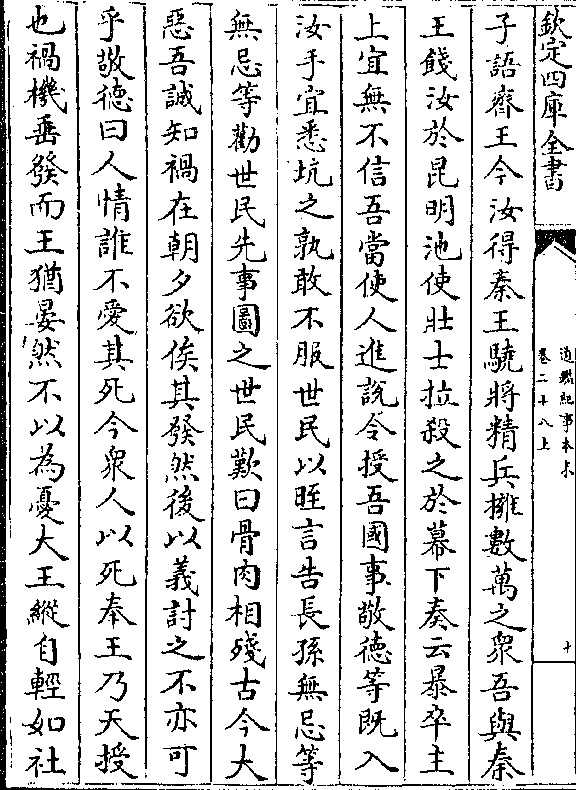 欽定四庫全書
通鑑紀事本末
卷二十八上
十
子語齊王今汝得秦王驍將精兵擁數萬之衆吾與秦
王餞汝於昆明池使壯士拉殺之於幕下奏云暴卒主
上宜無不信吾當使人進說令授吾國事敬德等旣入
汝手宜悉坑之孰敢不服世民以晊言告長孫無忌等
無忌等勸世民先事圖之世民歎曰骨肉相殘古今大
惡吾誠知禍在朝夕欲俟其發然後以義討之不亦可
乎敬德曰人情誰不愛其死今衆人以死奉王乃天授
也禍機垂發而王猶晏然不以為憂大王縱自輕如社